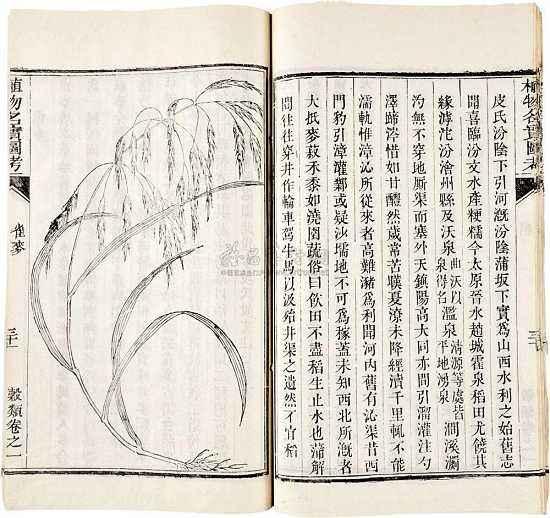 植物名實圖考
皮氏汾陰下引河漑汾陰蒲坂下實爲山西水利之始舊志
聞喜臨汾文水產粳糯今太原晉水趙城霍泉稻田尤饒其
緣滹沱汾澮州縣及沃泉曲沃以泉得名濫泉清源等處皆平地湧泉澗溪瀾
汋無不穿地厮渠而塞外天鎮陽高大同亦間引溜灌注勺
澤蹄涔惜如甘醴然歲常苦暵夏潦未降經瀆千里輒不能
濡軌惟漳沁所從來者高難瀦爲利聞河內舊有沁渠昔西
門豹引漳灌鄴或疑沙壖地不可爲稼蓋未知西北所漑者
大抵麥菽禾黍如澆園蔬俗曰飲田不盡稻生止水也蒲解
間往往穿井作輪車駕牛馬以汲殆井渠之遺然不宜稻
植物名實圖考
雀麥
穀類卷之一